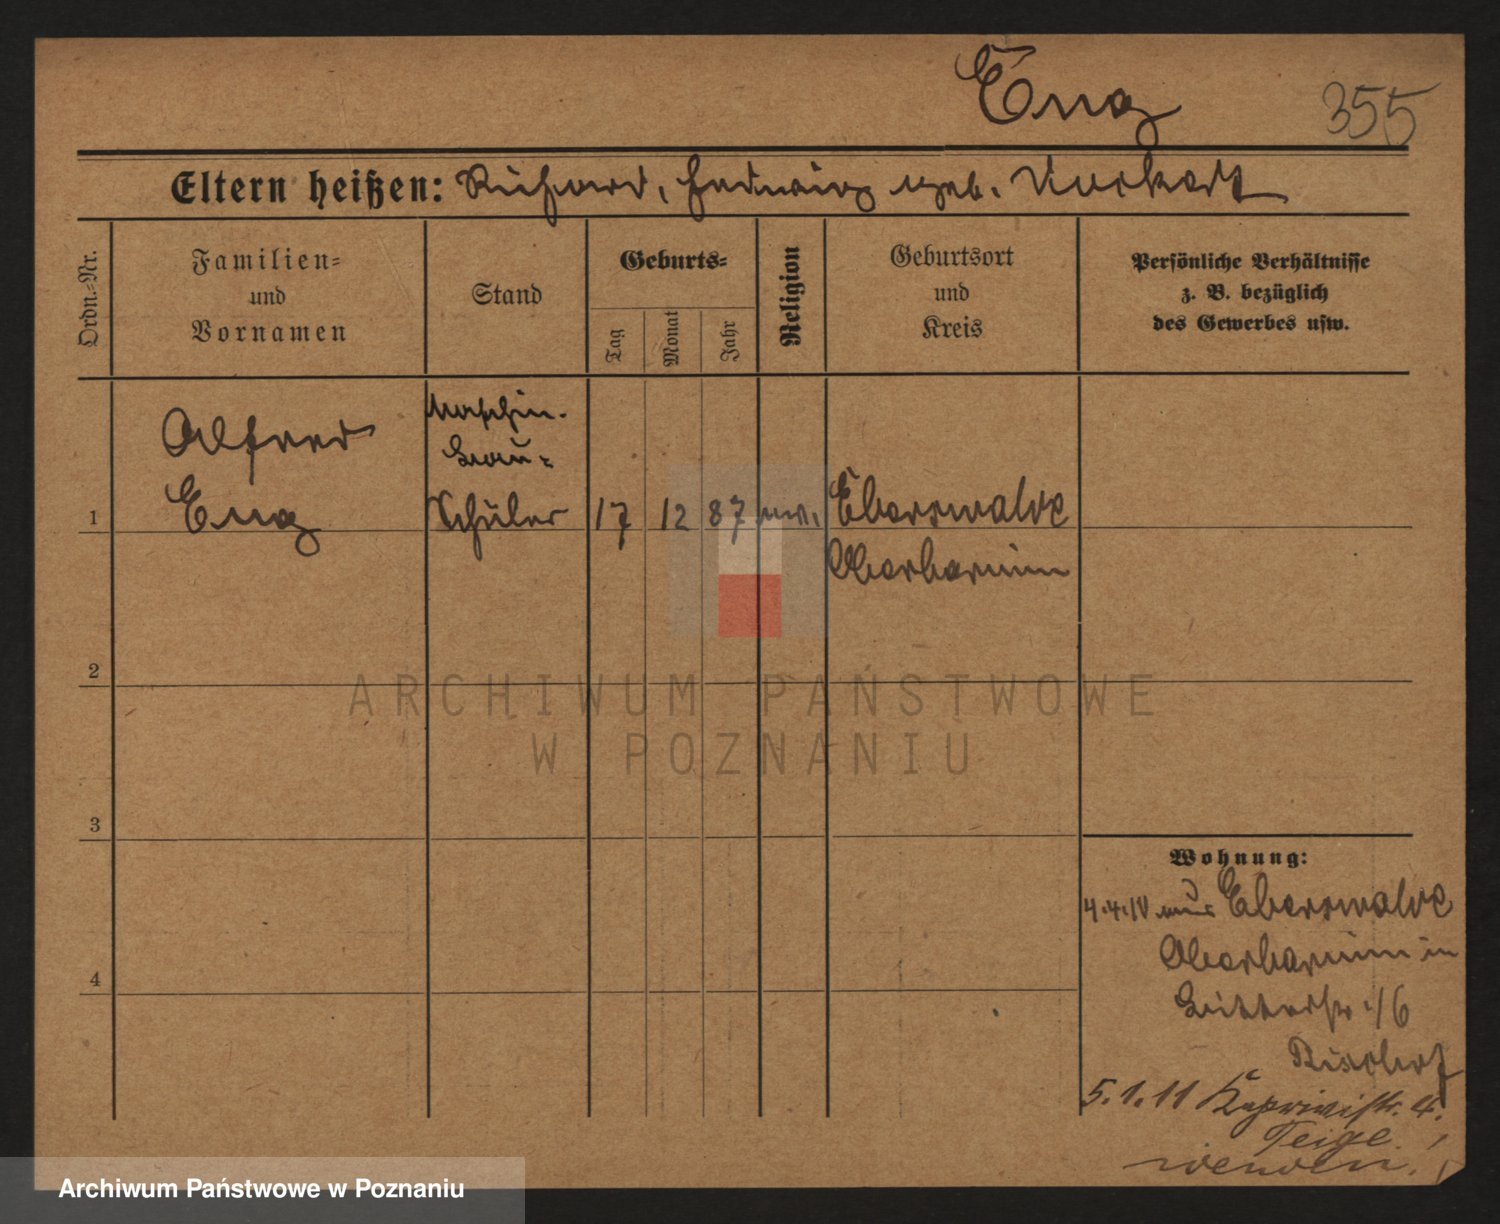 Enq
355
Eltern heißen: Richard, Hedwig geb.
Ordn.-Nr.
Familien- und Vornamen
Stand
Geburts-
Tag
Monat
Jahr
Religion
Geburtsort und Kreis
Persönliche Verhältnisse
z. B. bezüglich
des Gewerbes usw.
Alfred
Maschin.
bau-
1 Enq Schüler 17 12 87 ev. Eberswalde
Oberbarnim
2
3
4
Wohnung:
4.4.10 aus Eberswalde
Oberbarnim in
16
5.1.11 Kaprivistr. 4.
Teige.
wenden!
ARCHIWUM PAŃSTWOWE
W POZNANIU
Archiwum Państwowe w Poznaniu